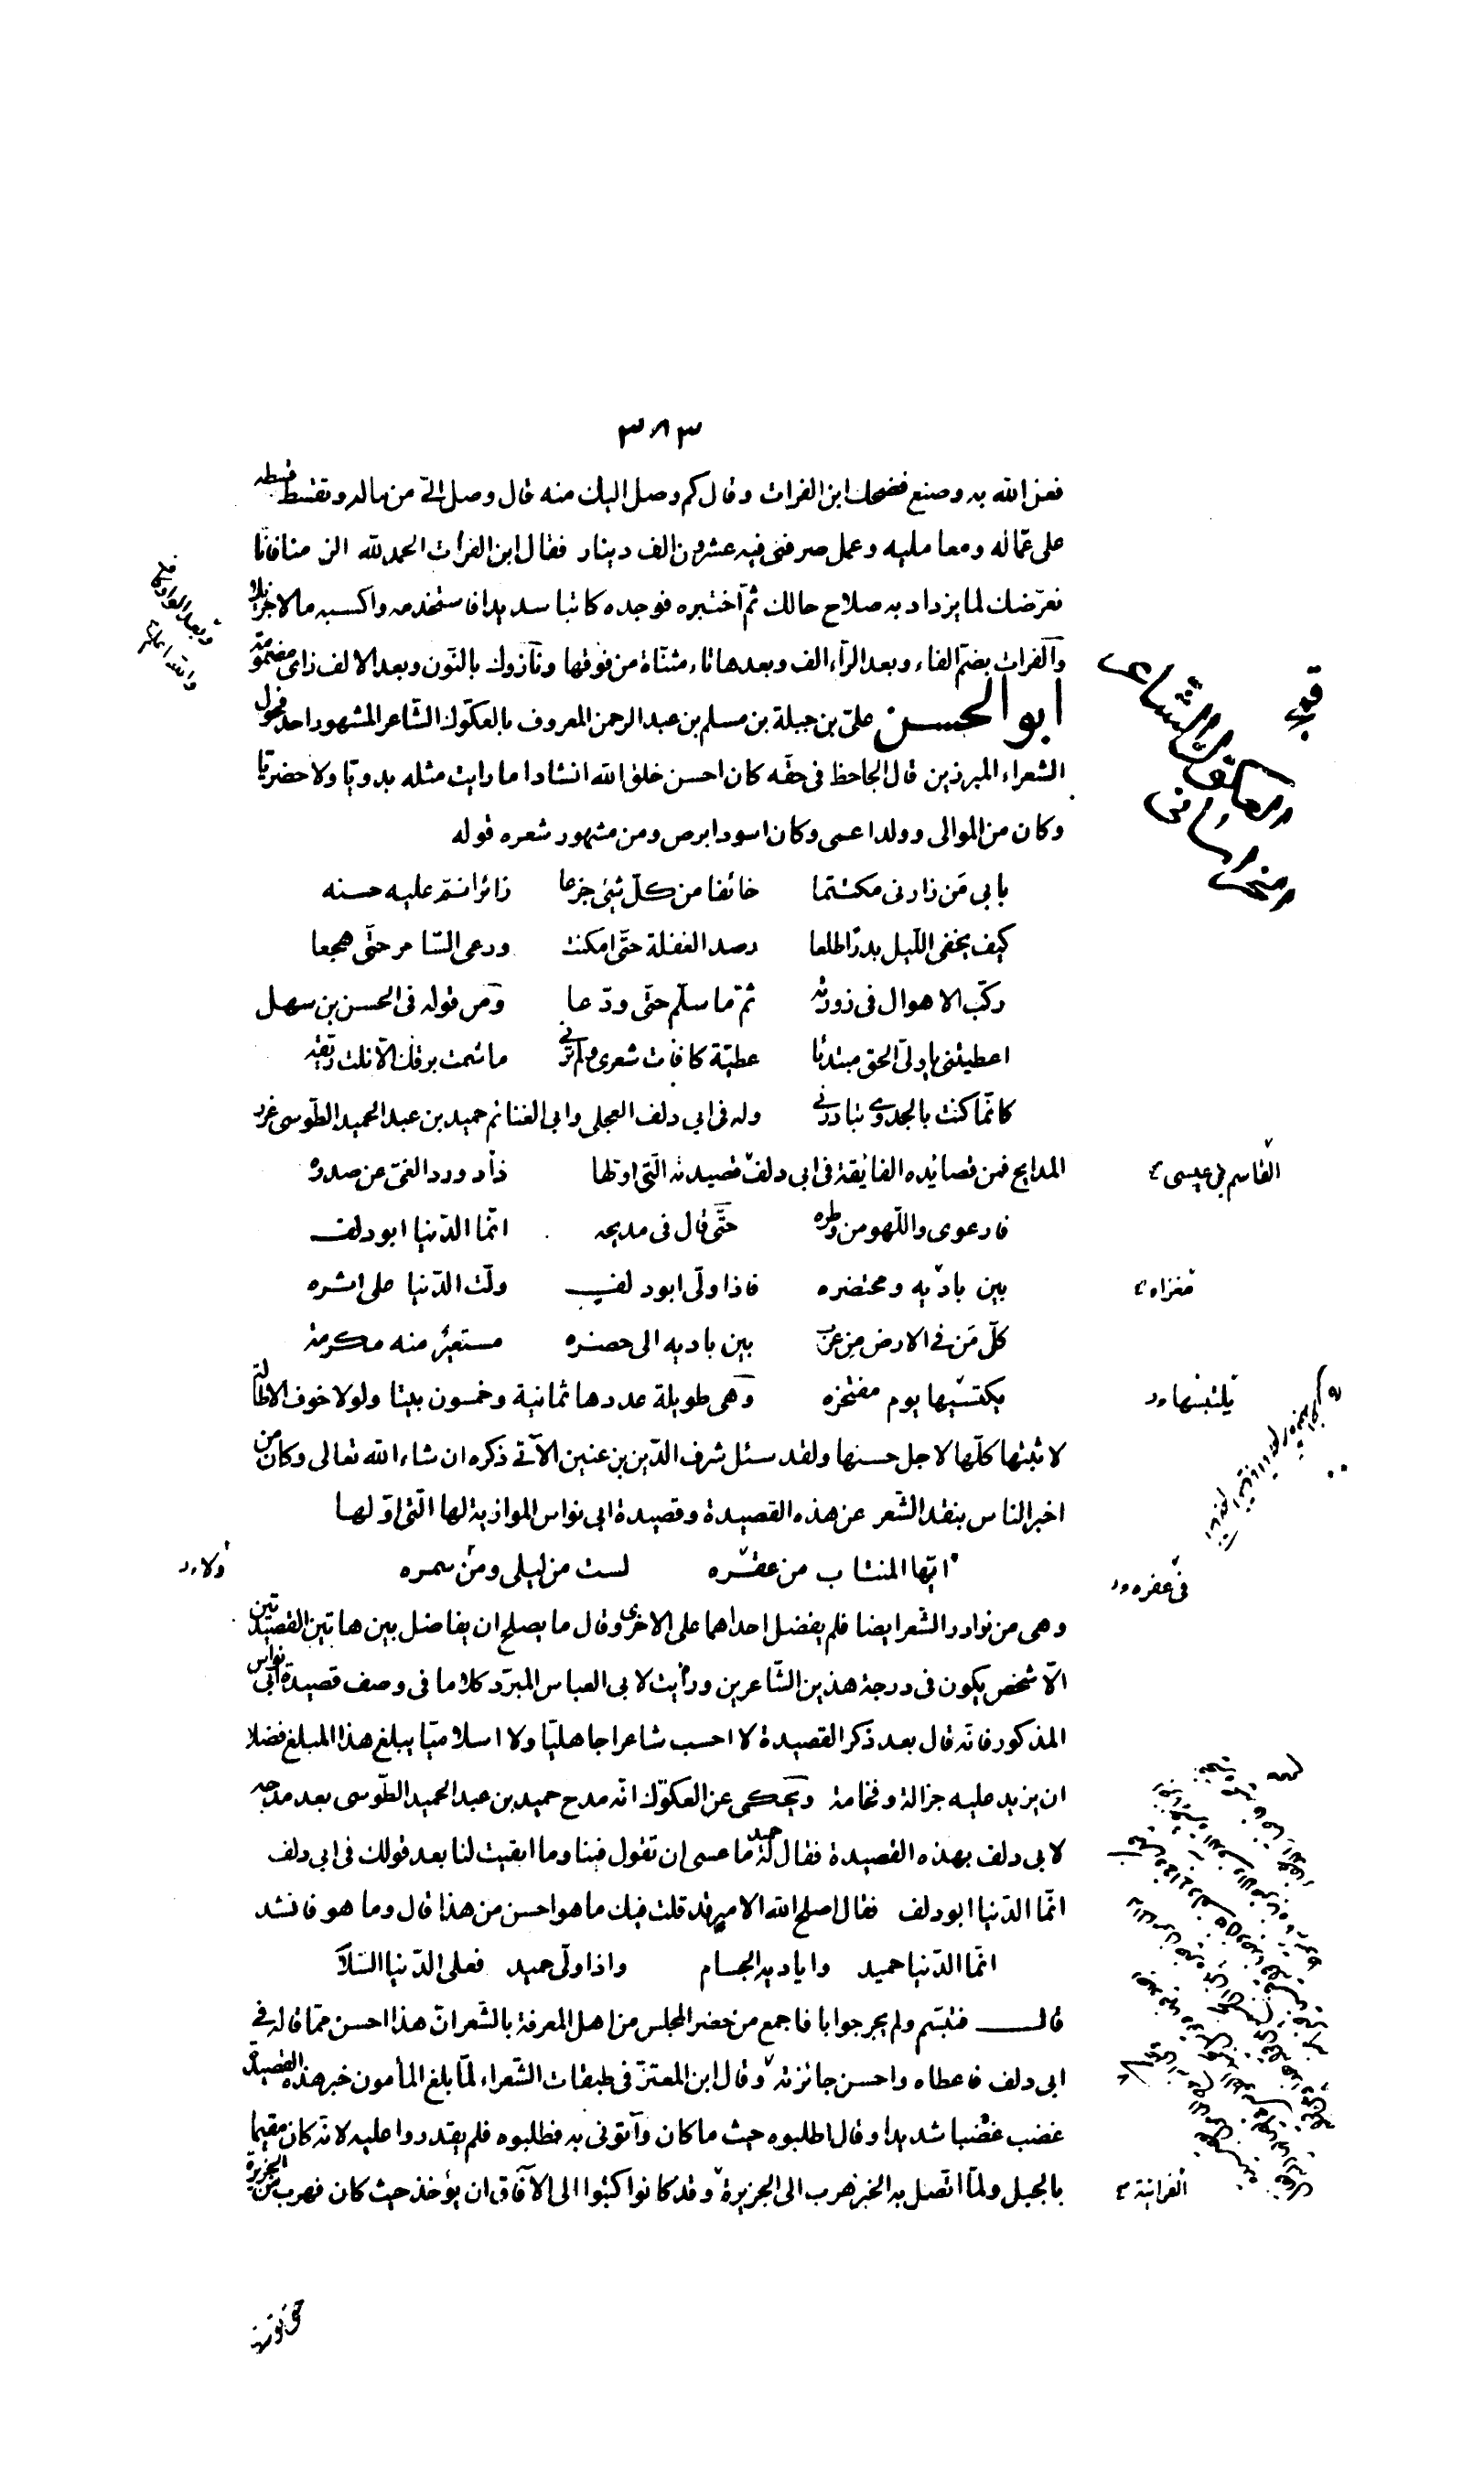 ٣٨٣
فعل الله به وصنع فضحك ابن الفرات وقال كم وصل اليك منه قال وصل الىّ من ماله وتقسّط قسطه
على عمّاله ومعامليه وعمل صرفنى فيه عشرون الف دينار فقال ابن الفرات الحمد لله الزمنافانّا
نعرّضك لما يزداد به صلاح حالك ثمّ اختبره فوجده كاتبا سديدا فاستخدمه واكسبه مالا جزيلا
والفرات بضمّ الفاء وبعد الرّاء الف وبعدها تاء مثنّاة من فوقها ونازوك بالنّون وبعد الالف زاى مضمومة
وبعد الواو كاف
والله اعلم
ابو الحسن علىّ بن جبلة بن مسلم بن عبد الرحمن المعروف بالعكوّك الشّاعر المشهور احد فحول
العكوّك الشّاعر
الخراسانى
الشعراء المبرزين قال الجاحظ فى حقّه كان احسن خلق الله انشادا ما رايت مثله بدويّا ولا حضريّا
وكان من الموالى وولد اعمى وكان اسود ابرص ومن مشهور شعره قوله
بابى من زارنى مكتتما خائفا من كلّ شىء جزعا زائرا نمّ عليه حسنه
كيف يخفى اللّيل بدرًا طلعا رصد الغفلة حتّى امكنت ورعى السّامر حتّى هجعا
ركب الاهوال فى زورته ثمّ ما سلّم حتّى ودّعا ومن قوله فى الحسن بن سهل
اعطيتنى يا ولىّ الحق مبتدئا عطيّة كافأت شعرى ولم ترنى ما شمت برقك الّا نلت ريّقه
كانّما كنت بالجدوى تبادرنى وله فى ابى دلف العجلى وابى الغنائم حميد بن عبد الحميد الطّوسى غرر
المدايح فمن قصائده الفائقة فى ابى دلف قصيدته الّتى اوّلها ذاد ورد الغىّ عن صدره
القاسم بن عيسى
فارعوى واللّهو من وطره حتّى قال فى مديحه انّما الدّنيا ابو دلف
بين باديه ومحتضره فاذا ولّى ابو دلف ولّت الدّنيا على اثره
مغزاه
كلّ من فى الارض من عرب بين باديه الى حضره مستعير منه مكرمة
يكتسيها يوم مفتخره وهى طويلة عددها ثمانية وخمسون بيتا ولولا خوف الاطالة
لاثبتها كلّها لاجل حسنها ولقد سئل شرف الدّين بن عنين الآتى ذكره ان شاء الله تعالى وكان من
اخبر الناس بنقد الشّعر عن هذه القصيدة وقصيدة ابى نواس الموازية لها الّتى اوّلها
ايّها المنتاب من عفره لست من ليلى ومن سمره
ولا
فى عفره
وهى من نوادر الشّعر ايضا فلم يفضل احداهما على الاخرى وقال ما يصلح ان يفاضل بين هاتين القصيدتين
الّا شخص يكون فى درجة هذين الشّاعرين ورأيت لابى العباس المبرّد كلاما فى وصف قصيدة ابى نواس
المذكور فانّه قال بعد ذكر القصيدة لا احسب شاعرا جاهليّا ولا اسلاميّا يبلغ هذا المبلغ فضلا
ان يزيد عليه جزالة وفخامة ويحكى عن العكوّك انّه مدح حميد بن عبد الحميد الطّوسى بعد مدحه
لابى دلف بهذه القصيدة فقال له حميد ما عسى ان تقول فينا وما ابقيت لنا بعد قولك فى ابى دلف
انّما الدّنيا ابو دلف فقال اصلح الله الامير قد قلت فيك ما هو احسن من هذا قال وما هو فانشد
انّما الدّنيا حميد واياديه الجسام واذا ولّى حميد فعلى الدّنيا السّلام
قال فتبسّم ولم يحر جوابا فاجمع من حضر المجلس من اهل المعرفة بالشّعر انّ هذا احسن ممّا قاله فى
ابى دلف فاعطاه واحسن جائزته وقال ابن المعتزّ فى طبقات الشّعراء لمّا بلغ المأمون خبر هذه القصيدة
غضب غضبا شديدا وقال اطلبوه حيث ما كان وآتونى به فطلبوه فلم يقدروا عليه لانّه كان مقيما
بالجبل ولمّا اتّصل به الخبر هرب الى الجزيرة وقد كانوا كتبوا الى الآفاق ان يؤخذ حيث كان فهرب من الجزيرة
الفراتيّة